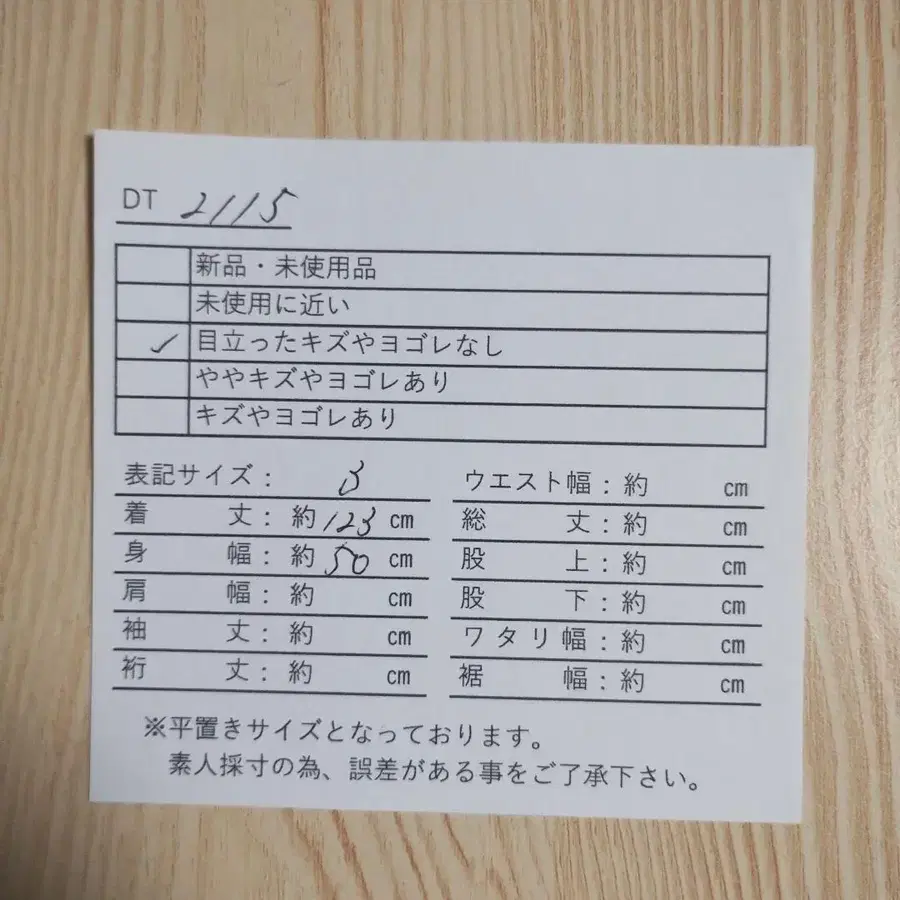 DT 2115
新品・未使用品
未使用に近い
✓ 目立ったキズやヨゴレなし
ややキズやヨゴレあり
キズやヨゴレあり
表記サイズ： 3
着丈：約123cm
身幅：約50cm
肩幅：約 cm
袖丈：約 cm
裄丈：約 cm
ウエスト幅：約 cm
総丈：約 cm
股上：約 cm
股下：約 cm
ワタリ幅：約 cm
裾幅：約 cm
※平置きサイズとなっております。
素人採寸の為、誤差がある事をご了承下さい。